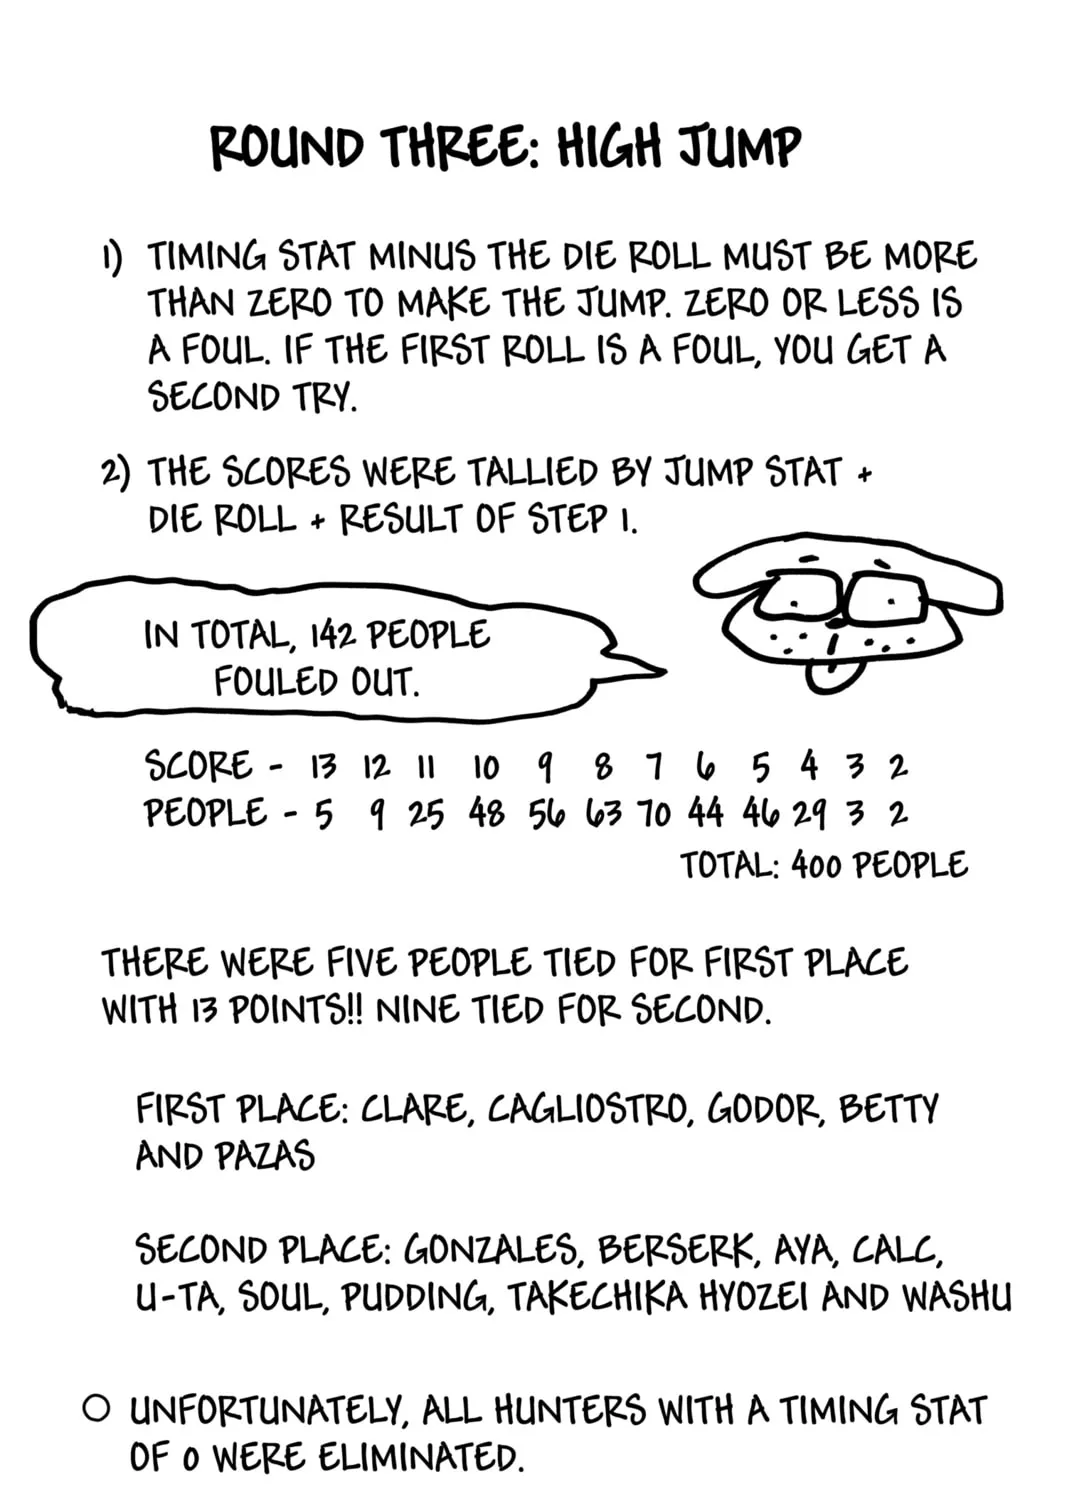 ROUND THREE: HIGH JUMP
1) TIMING STAT MINUS THE DIE ROLL MUST BE MORE
THAN ZERO TO MAKE THE JUMP. ZERO OR LESS IS
A FOUL. IF THE FIRST ROLL IS A FOUL, YOU GET A
SECOND TRY.
2) THE SCORES WERE TALLIED BY JUMP STAT +
DIE ROLL + RESULT OF STEP 1.
IN TOTAL, 142 PEOPLE
FOULED OUT.
SCORE - 13 12 11 10 9 8 7 6 5 4 3 2
PEOPLE - 5 9 25 48 56 63 70 44 46 29 3 2
TOTAL: 400 PEOPLE
THERE WERE FIVE PEOPLE TIED FOR FIRST PLACE
WITH 13 POINTS!! NINE TIED FOR SECOND.
FIRST PLACE: CLARE, CAGLIOSTRO, GODOR, BETTY
AND PAZAS
SECOND PLACE: GONZALES, BERSERK, AYA, CALC,
U-TA, SOUL, PUDDING, TAKECHIKA HYOZEI AND WASHU
○ UNFORTUNATELY, ALL HUNTERS WITH A TIMING STAT
OF 0 WERE ELIMINATED.